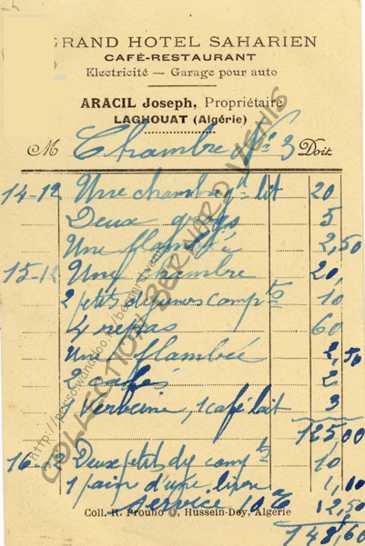 GRAND HOTEL SAHARIEN
CAFÉ-RESTAURANT
Electricité — Garage pour auto
ARACIL Joseph, Propriétaire
LAGHOUAT (Algérie)
M Chambre No 3 Doit
14-12 Une chambre gd lit 20
Deux grogs 5
Une flambée 2,50
15-12 Une chambre 20,
2 petits dejeuners compts 10
4 repas 60
Une flambée 2,50
2 cafés 2
Verveine, 1 café lait 3
125,00
16-12 Deux petits dej compts 10
1 pain d'une livre 1,10
service 10% 12,50
148,60
Coll. R. Prouho, Hussein-Dey, Algérie
COLLECTION BERNARD VENIS